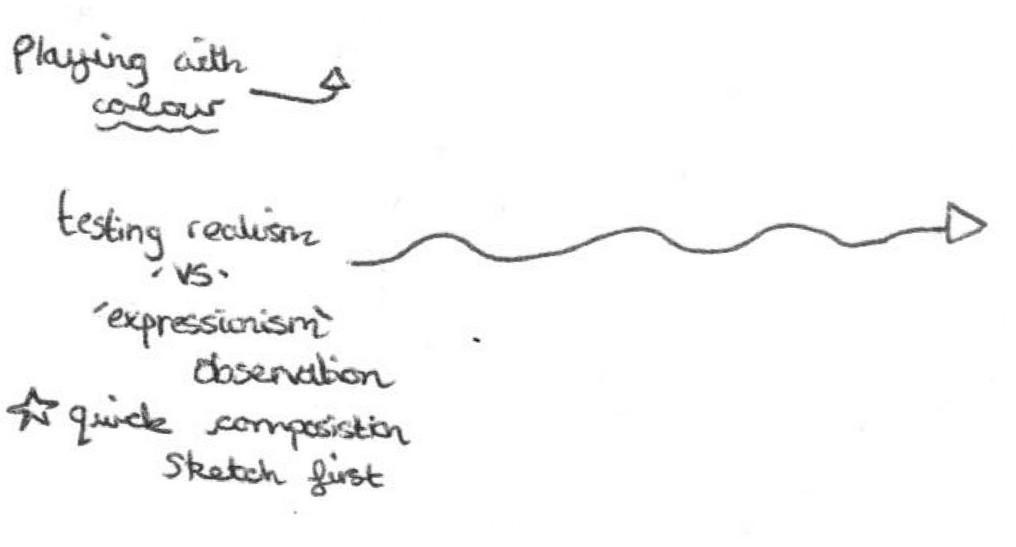 Playing with
colour
testing realism
'vs'
'expressionism'
observation
quick composistion
Sketch first